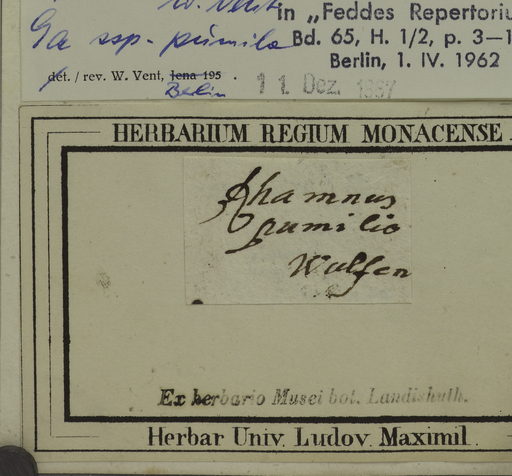 W. Vent in „Feddes Repertoriu
Ga ssp. pumila Bd. 65, H. 1/2, p. 3—1
Berlin, 1. IV. 1962
det. / rev. W. Vent, Jena 195 .
Berlin 11. Dez.
HERBARIUM REGIUM MONACENSE
Rhamnus
pumilio
Wulfen
Ex herbario Musei bot. Landishuth.
Herbar Univ. Ludov. Maximil.